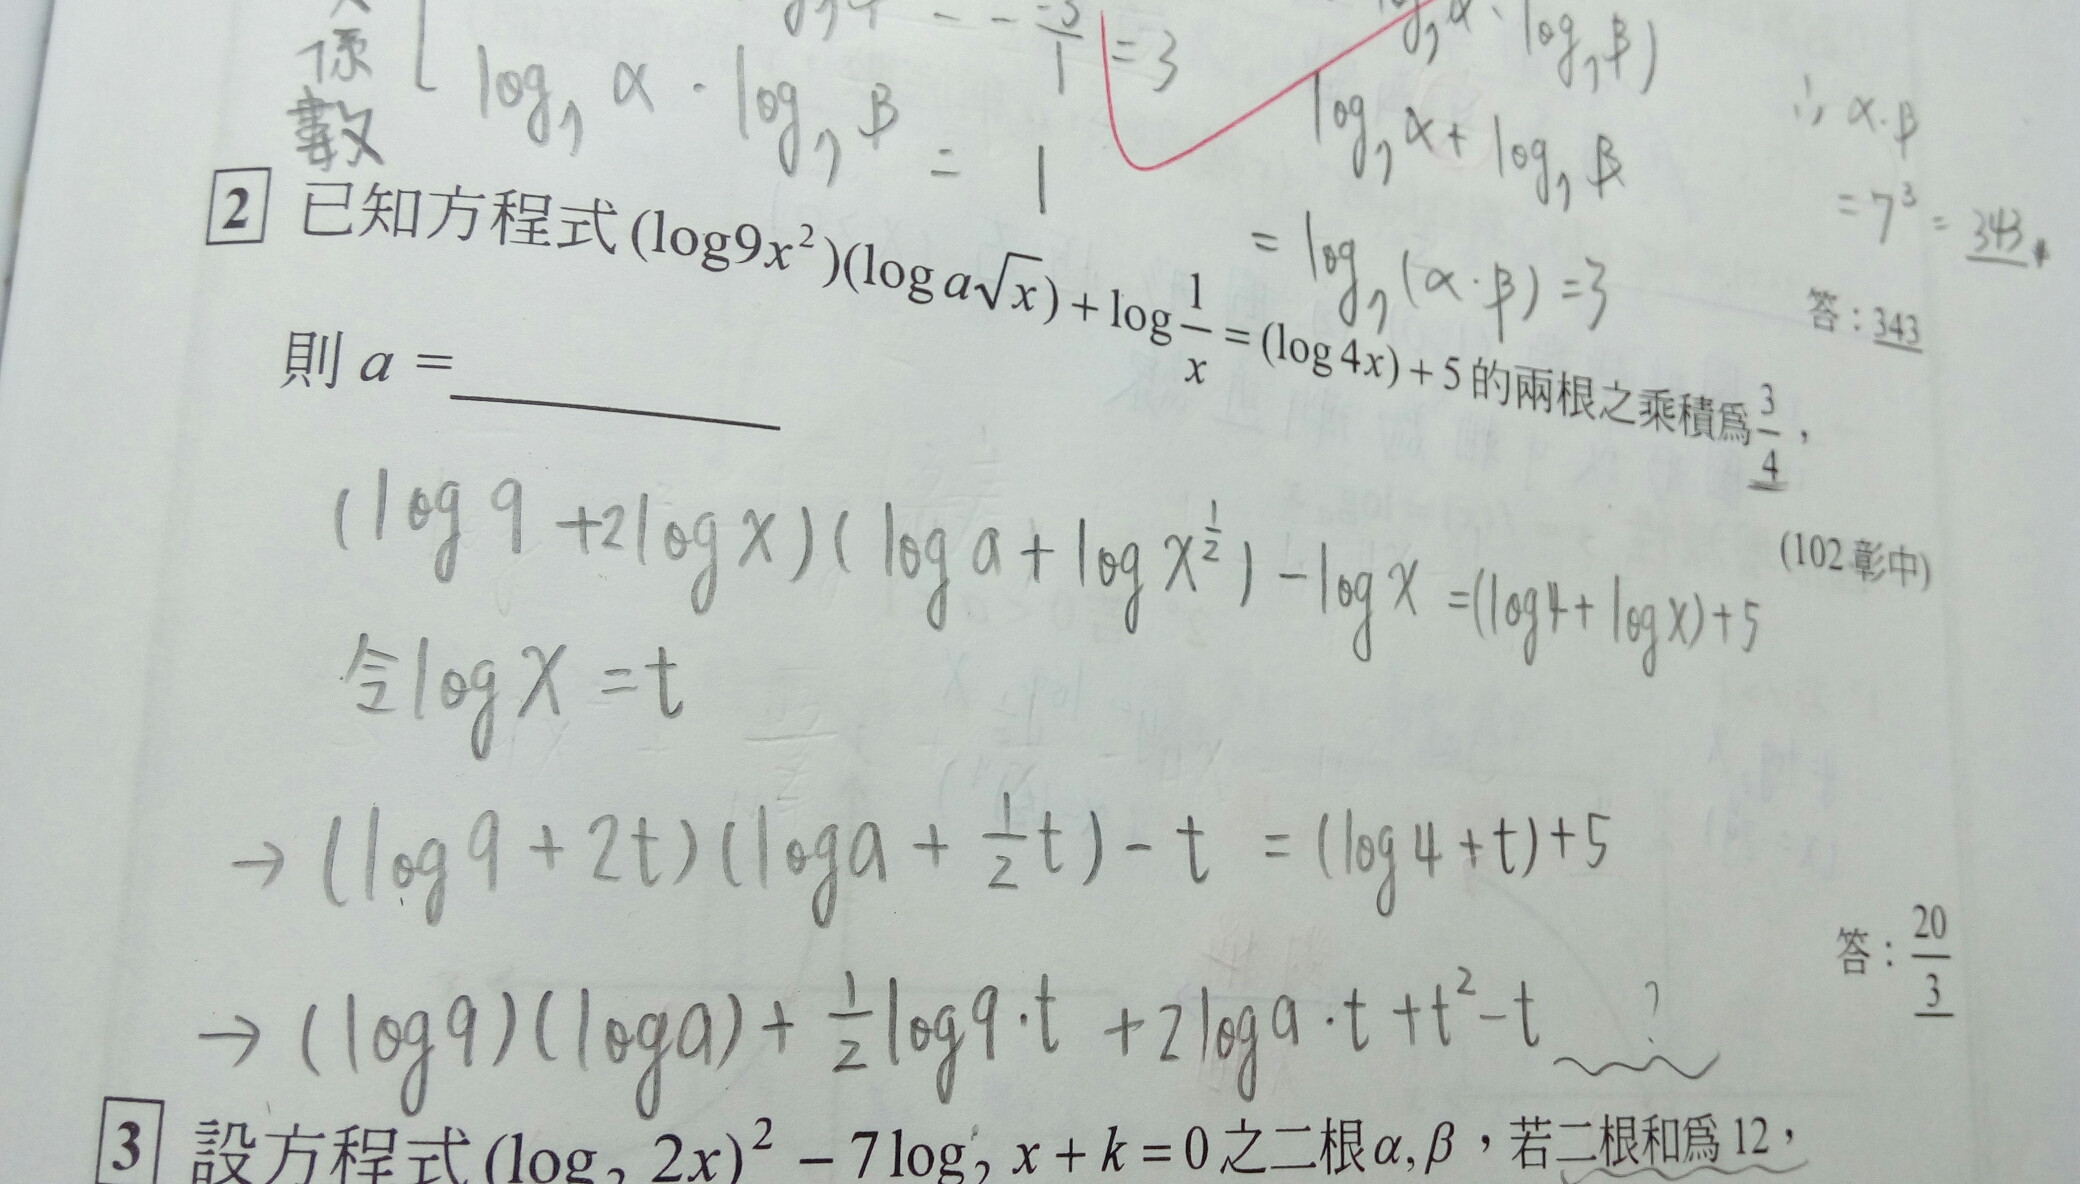 係 log₇ α · log₇ β = 1
數
-3/1 = 3
log₇ α · log₇ β)
log₇ α + log₇ β
= log₇ (α·β) = 3
∴ α·β
= 7³ = 343
答：343
2 已知方程式 (log9x²)(log a√x) + log 1/x = (log 4x) + 5 的兩根之乘積為 3/4，
則 a = ______
(102 彰中)
(log 9 + 2log x)(log a + log x^½) - log x = (log4 + log x) + 5
令 log x = t
→ (log 9 + 2t)(log a + ½t) - t = (log 4 + t) + 5
答：20/3
→ (log 9)(log a) + ½ log 9·t + 2 log a·t + t² - t ?
3 設方程式 (log₂ 2x)² - 7 log₂ x + k = 0 之二根 α, β，若二根和為 12，